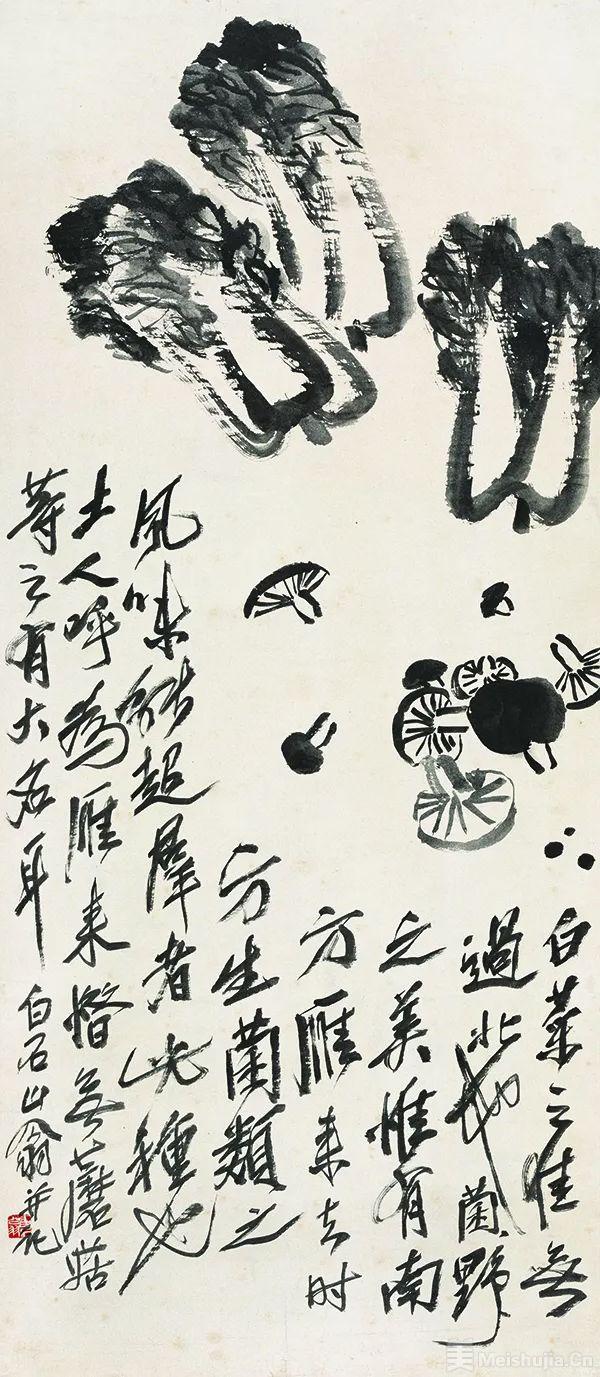 白菜之佳無
過北地菌野
之美惟有南
方雁来去时
方生菌類之
風味能超羣者此種也
土人呼為雁来蕈無蘑菇
等之有大名耳
白石山翁并記
美 Meishujia.Cn